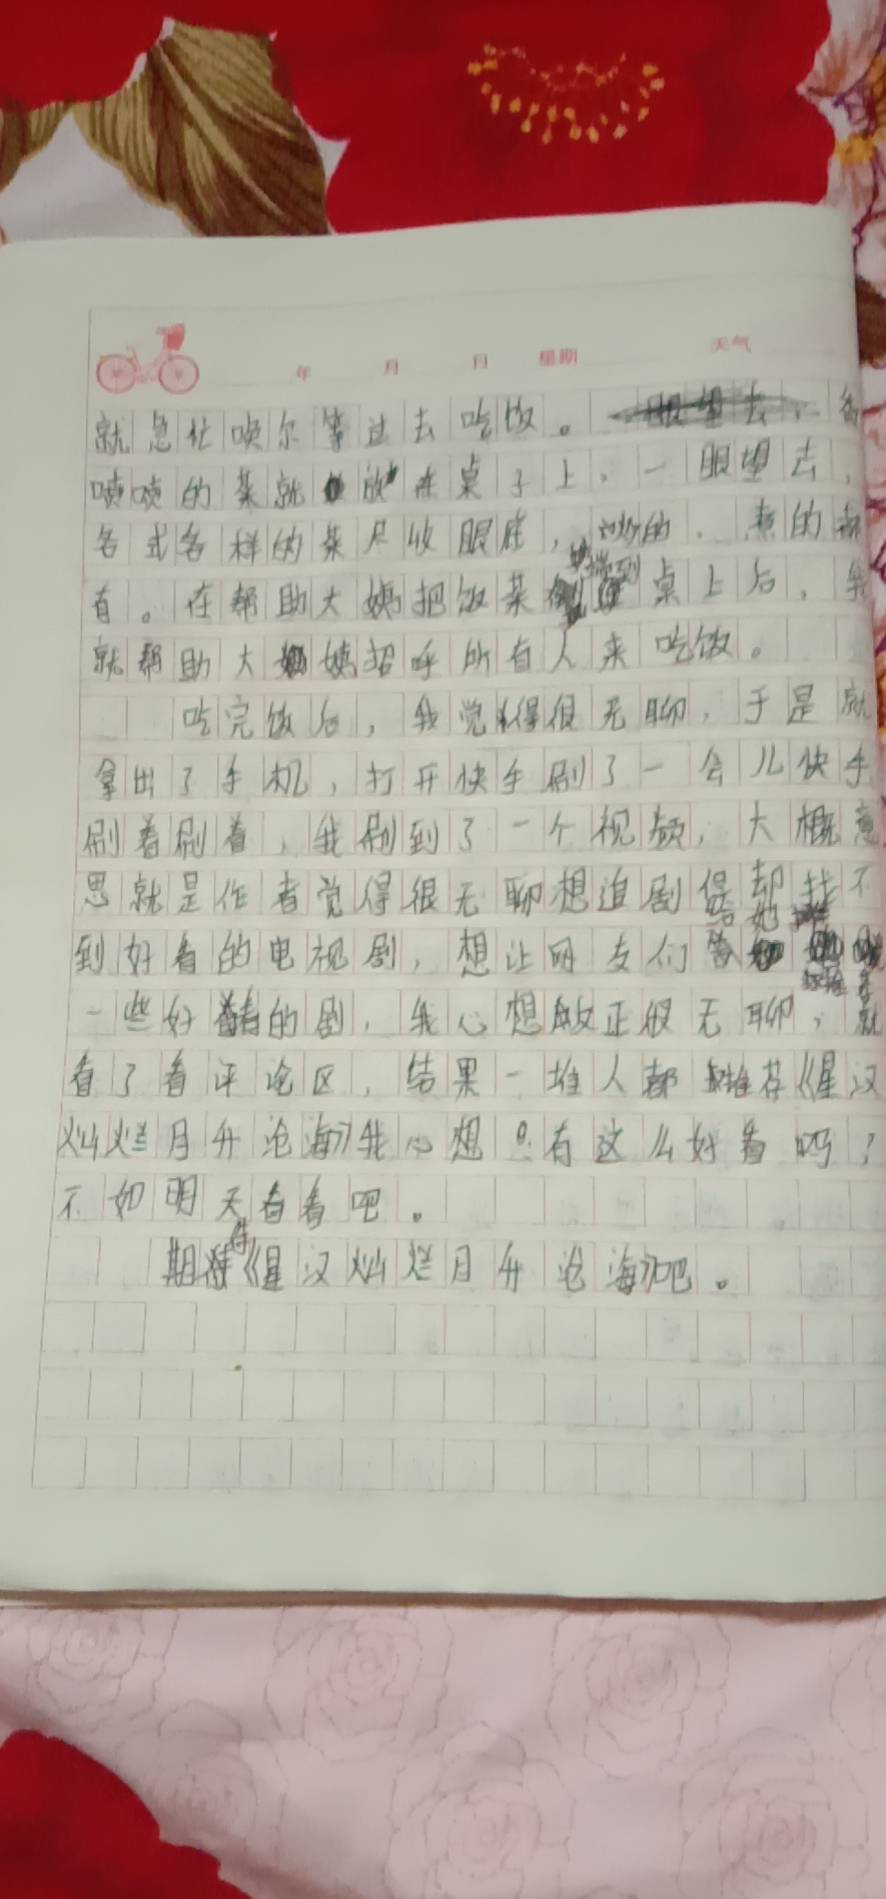 年 月 日 星期 天气
就急忙唤尔等过去吃饭。香
喷喷的菜就放在桌子上,一眼望去,
各式各样的菜尽收眼底,炒的、煮的都
有。在帮助大姨把饭菜端到桌上后,我
就帮助大姨招呼所有人来吃饭。
吃完饭后,我觉得很无聊,于是就
拿出了手机,打开快手刷了一会儿快手
刷着刷着,我刷到了一个视频,大概意
思就是作者觉得很无聊想追剧却找不
到好看的电视剧,想让网友们给她推荐
一些好看的剧,我心想反正很无聊,就
看了看评论区,结果一堆人都推荐《星汉
灿烂月升沧海》我心想:有这么好看吗?
不如明天看看吧。
期待《星汉灿烂月升沧海》吧。